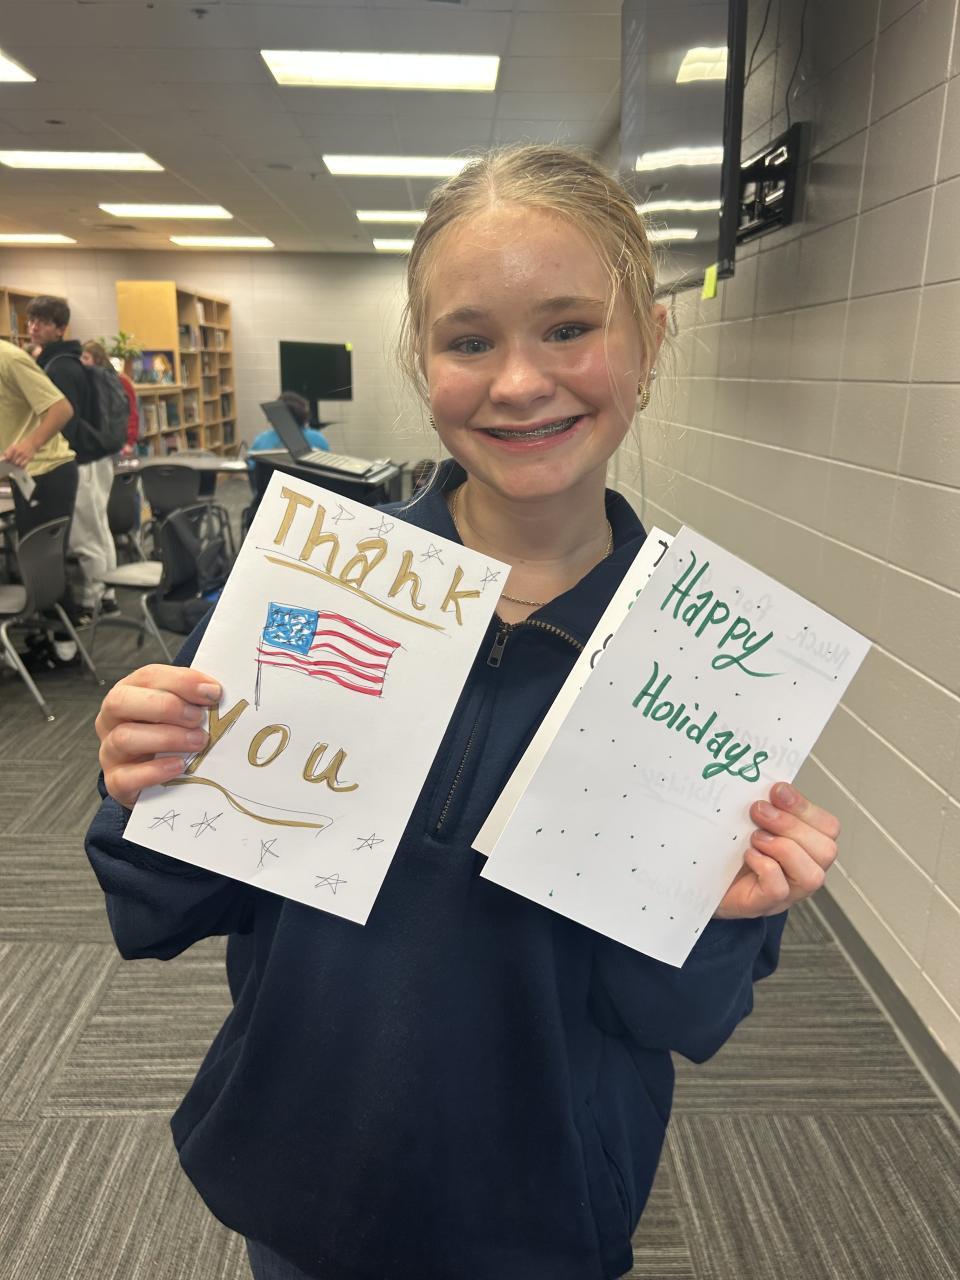 Thank
you
Happy
Holidays